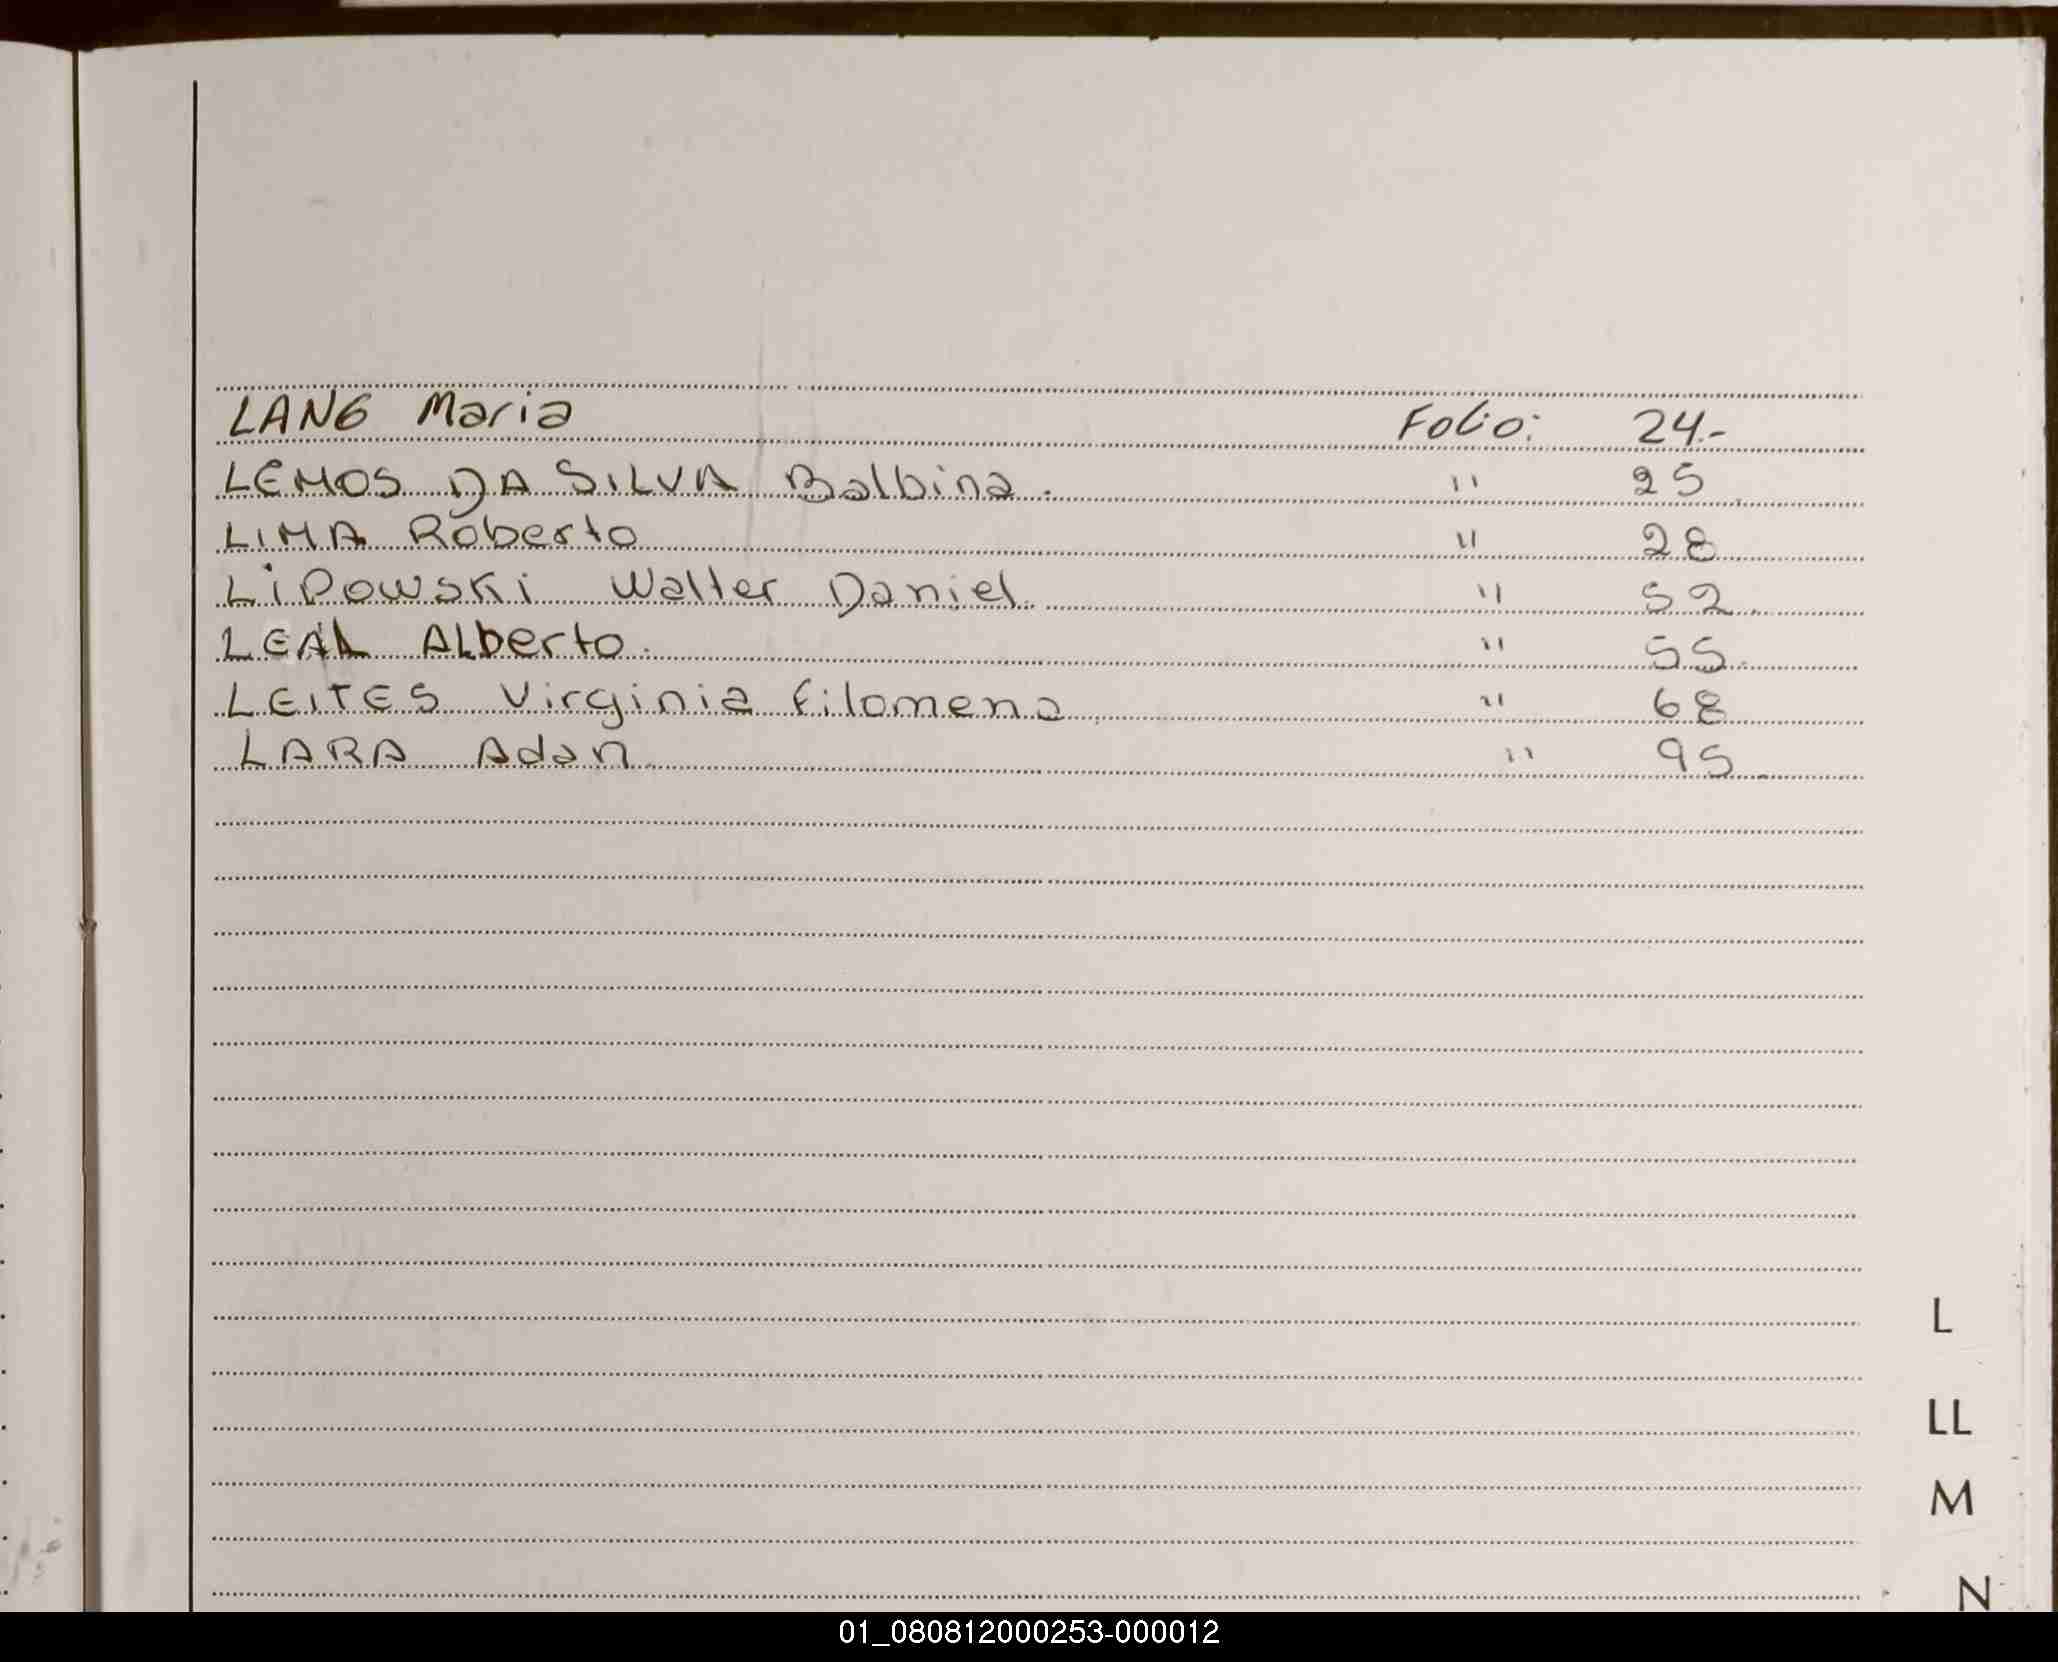 LANG Maria Folio: 24.-
LEMOS DA SILVA Balbina. " 25.
LIMA Roberto " 28
LiPowski Walter Daniel. " 52.
LEAL Alberto. " 55.
LEITES Virginia Filomena. " 68
LARA Adan. " 95.
L
LL
M
N
01_080812000253-000012